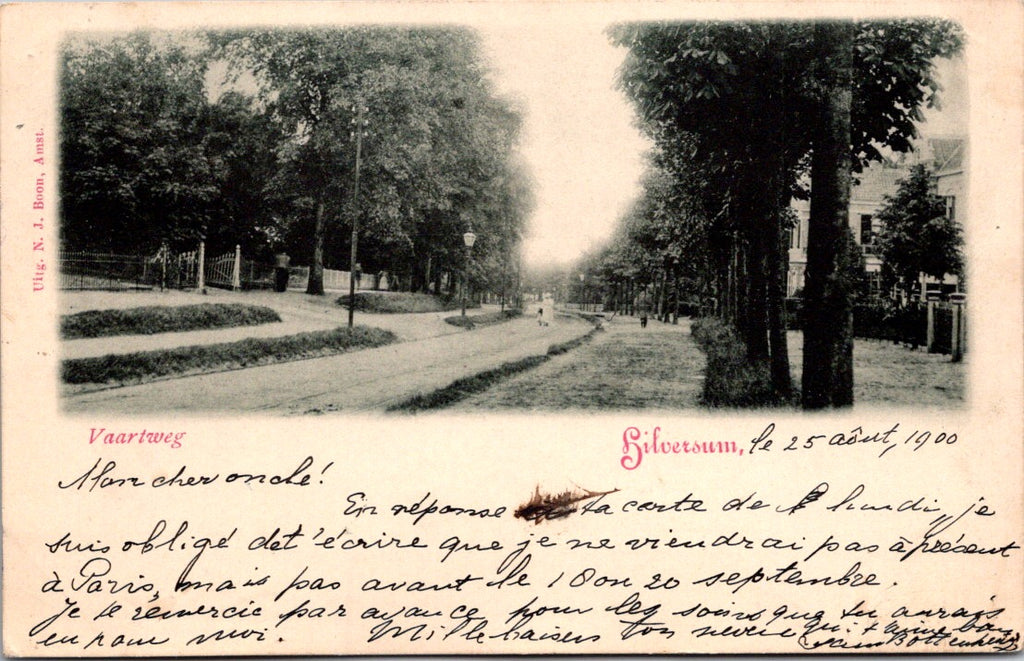 Uitg. N. J. Boon, Amst.
Vaartweg
Hilversum, le 25 août, 1900
Mon cher oncle!
En réponse ta carte de lundi, je
suis obligé de t'écrire que je ne viendrai pas à présent
à Paris, mais pas avant le 18 ou 20 septembre.
Je te remercie par avance pour les soins que tu aurais
eu pour moi. Mille baisers ton neveu qui t'aime